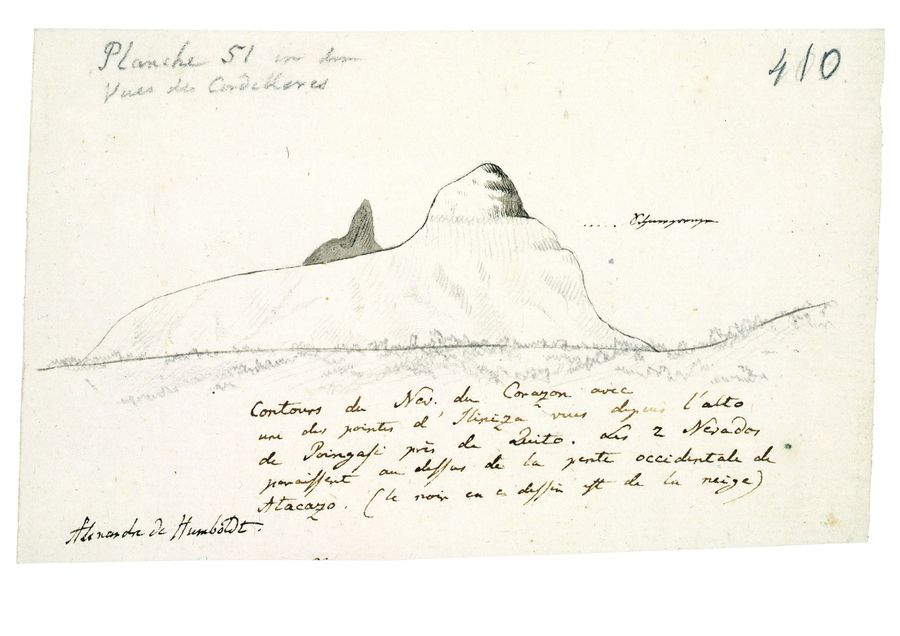 Planche 51
Vues des Cordilleres
410
Contours du Nev. du Corazon avec
une des pointes d'Iliniza vues depuis l'alto
de Poingasi près de Quito. Les 2 Nevados
paraissent au dessus de la pente occidentale de
Atacazo. (le noir en ce dessin est de la neige)
Alexandre de Humboldt.